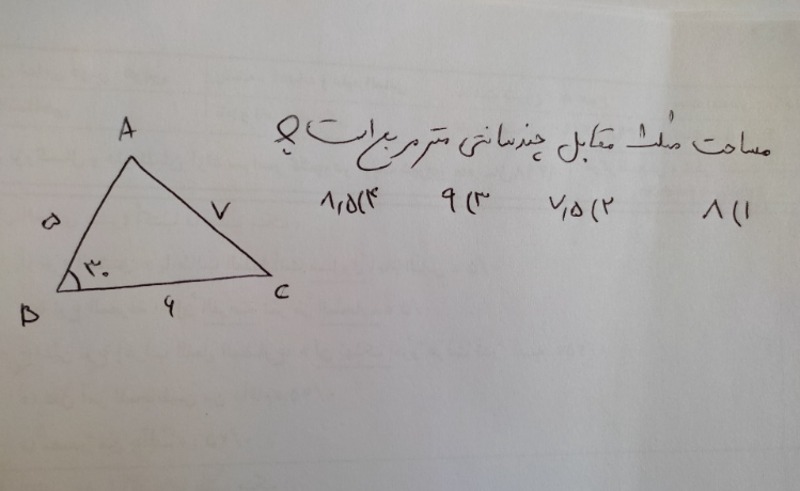 مساحت مثلث مقابل چند سانتی متر مربع است؟
۱) ۸ ۲) ۷,۵ ۳) ۹ ۴) ۸,۵
A
۵ ۷
۳۰
B ۶ C